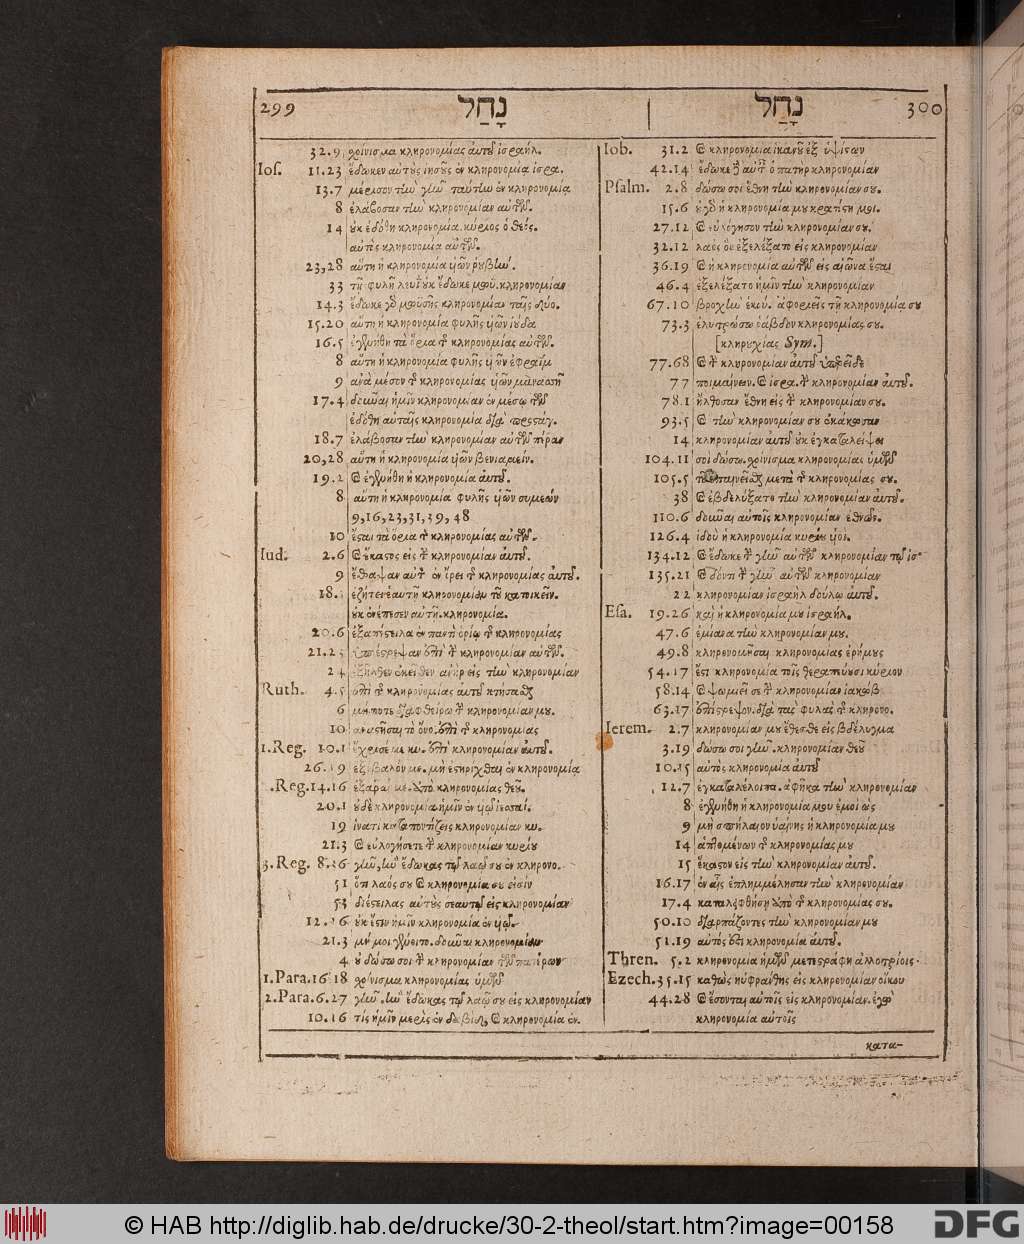 299 נָחַל
נָחַל 300
32.9 χοίνισμα κληρονομίας αὐτȣ͂ ἰσραήλ.
Ios. 11.23 ἔδωκεν αὐτȣ̀ς ἰησȣ͂ς ἐν κληρονομία ἰσρα.
13.7 μέρισον τὴν γῆν ταύτην ἐν κληρονομία
8 ἐλάβοσαν τὴν κληρονομίαν αὐτῶν.
14 ȣ̓κ ἐδόθη κληρονομία. κύριος ὁ θεός.
αὐτὸς κληρονομία αὐτῶν.
23,28 αὕτη ἡ κληρονομία υἱῶν ῥυβίν.
33 τῇ φυλῇ λευὶ ȣ̓κ ἔδωκε μωυ. κληρονομίαν
14.3 ἔδωκε γὸ μωυσῆς κληρονομίαν ταῖς δύο.
15.20 αὕτη ἡ κληρονομία φυλῆς υἱῶν ἰούδα
16.5 ἐγενήθη τὰ ὅρια τ῀ κληρονομίας αὐτῶν.
8 αὕτη ἡ κληρονομία φυλῆς υἱῶν ἐφραῒμ
9 ἀνὰ μέσον τ῀ κληρονομίας υἱῶν μανασσῆ
17.4 δοῦναι ἡμῖν κληρονομίαν ἐν μέσῳ τῶν
ἐδόθη αὐταῖς κληρονομία διὰ προστάγ.
18.7 ἐλάβοσαν τὴν κληρονομίαν αὐτῶν πέραν
20,28 αὕτη ἡ κληρονομία υἱῶν βενιαμείν.
19.2 Ȣ ἐγενήθη ἡ κληρονομία αὐτῶν.
8 αὕτη ἡ κληρονομία φυλῆς υἱῶν συμεών
9,16,23,31,39,48
10 ἔσται τὰ ὅρια τ῀ κληρονομίας αὐτῶν.
Iud. 2.6 ϗ ἕκαστος εἰς τ῀ κληρονομίαν αὐτȣ͂.
9 ἔθαψαν αὐτ῀ ἐν ὄρει τ῀ κληρονομίας αὐτȣ͂.
18. ἐζήτει ἑαυτῇ κληρονομίαν τȣ͂ κατοικεῖν.
ȣ̓κ ἐνέπεσεν αὐτῇ κληρονομία.
20.6 ἐξαπέστειλα ἐν παντὶ ὁρίῳ τ῀ κληρονομίας
21.23 ὑπέστρεψαν ἐπὶ τ῀ κληρονομίαν αὐτῶν.
24 ἐξῆλθεν ἐκεῖθεν ἀνὴρ εἰς τὴν κληρονομίαν
Ruth. 4.5 ἐπὶ τ῀ κληρονομίας αὐτȣ͂ κτήσασθ
6 μήποτε διαφθείρω τ῀ κληρονομίαν μȣ.
10 ἀναστῆσαι τὸ ὄνο. ἐπὶ τ῀ κληρονομίας
1.Reg. 10.1 ἔχρισέ σε κυ. ἐπὶ κληρονομίαν αὐτȣ͂.
26.19 ἐξέβαλόν με. μὴ ἐστηρίχθαι ἐν κληρονομία
.Reg.14.16 ἐξᾶραί με. ὑπὸ κληρονομίας θεȣ͂.
20.1 ȣ̓δὲ κληρονομία ἡμῖν ἐν υἱῷ ἰεσσαί.
19 ἱνατί καταποντίζεις κληρονομίαν κυ.
21.3 ϗ εὐλογήσετε τ῀ κληρονομίαν κυρίȣ
3.Reg. 8.36 γῆν, ἣν ἔδωκας τῷ λαῷ σȣ ἐν κληρονο.
51 ὅτι λαός σȣ ϗ κληρονομία σȣ εἰσίν
53 διέστειλας αὐτȣ̀ς σεαυτῷ εἰς κληρονομίαν
12.16 ȣ̓κ ἔστιν ἡμῖν κληρονομία ἐν υἱῷ.
21.3 μή μοι γένοιτο. δοῦναι κληρονομίαν
4 ȣ̓ δώσω σοι τ῀ κληρονομίαν τῶν πατέρων
1.Para.16.18 χοίνισμα κληρονομίας ὑμῶν
2.Para.6.27 γῆν. ἣν ἔδωκας τῷ λαῷ σȣ εἰς κληρονομίαν
10.16 τίς ἡμῖν μερὶς ἐν δαβὶδ, ϗ κληρονομία ἐν.
Iob. 31.2 ϗ κληρονομία ἱκανȣ͂ ἐξ ὑψίστων
42.14 ἔδωκε δὲ αὐτ῀ ὁ πατὴρ κληρονομίαν
Psalm. 2.8 δώσω σοι ἔθνη τὴν κληρονομίαν σȣ.
15.6 ϗ γὸ ἡ κληρονομία μȣ κρατίστη μοι.
27.12 ϗ εὐλόγησον τὴν κληρονομίαν σȣ.
32.12 λαὸς ὃν ἐξελέξατο εἰς κληρονομίαν
36.19 ϗ ἡ κληρονομία αὐτῶν εἰς αἰῶνα ἔσται
46.4 ἐξελέξατο ἡμῖν τὴν κληρονομίαν
67.10 βροχὴν ἑκού. ἀφοριεῖς τῇ κληρονομία σȣ
73.3 ἐλυτρώσω ῥάβδον κληρονομίας σȣ.
[κληρȣχίας Sym.]
77.68 ϗ τ῀ κληρονομίαν αὐτȣ͂ ὑπερεῖδε
77 ποιμαίνειν. ϗ ἰσρα. τ῀ κληρονομίαν αὐτȣ͂.
78.1 ἤλθοσαν ἔθνη εἰς τ῀ κληρονομίαν σȣ.
93.5 ϗ τὴν κληρονομίαν σȣ ἐκάκωσαν
14 κληρονομίαν αὐτȣ͂ ȣ̓κ ἐγκαταλείψει
104.11 σοὶ δώσω. χοίνισμα κληρονομίας ὑμῶν
105.5 τȣ͂ ἐπαινεῖσθ μετὰ τ῀ κληρονομίας σȣ.
38 ϗ ἐβδελύξατο τὴν κληρονομίαν αὐτȣ͂.
110.6 δοῦναι αὐτοῖς κληρονομίαν ἐθνῶν.
126.4 ἰδȣ̀ ἡ κληρονομία κυρίȣ υἱοί.
134.12 ϗ ἔδωκε τ῀ γῆν αὐτῶν κληρονομίαν τῷ ἰσ.
135.21 ϗ δόντι τ῀ γῆν αὐτῶν κληρονομίαν
22 κληρονομίαν ἰσραὴλ δούλῳ αὐτȣ͂.
Esa. 19.26 καὶ ἡ κληρονομία μȣ ἰσραήλ.
47.6 ἐμίανα τὴν κληρονομίαν μȣ.
49.8 κληρονομῆσαι κληρονομίας ἐρήμȣς
54.17 ἔστι κληρονομία τοῖς θεραπεύȣσι κύριον
58.14 ϗ ψωμιεῖ σε τ῀ κληρονομίαν ἰακώβ
63.17 ἐπίστρεψον. διὰ τὰς φυλὰς τ῀ κληρονο.
Ierem. 2.7 κληρονομίαν μȣ ἔθεσθε εἰς βδέλυγμα
3.19 δώσω σοι γῆν. κληρονομίαν θεȣ͂
10.15 αὐτὸς κληρονομία αὐτȣ͂
12.7 ἐγκαταλέλοιπα. ἀφῆκα τὴν κληρονομίαν
8 ἐγενήθη ἡ κληρονομία μου ἐμοὶ ὡς
9 μὴ σπήλαιον ὑαίνης ἡ κληρονομία μȣ
14 ἁπτομένων τ῀ κληρονομίας μȣ
15 ἕκαστον εἰς τὴν κληρονομίαν αὐτȣ͂.
16.17 ἐν αἷς ἐπλημμέλησαν τὴν κληρονομίαν
17.4 καταλειφθήσῃ ὑπὸ τ῀ κληρονομίας σȣ.
50.10 διαρπάζοντες τὴν κληρονομίαν μȣ
51.19 αὐτός ἐστι κληρονομία αὐτȣ͂.
Thren. 5.2 κληρονομία ἡμῶν μετεστράφη ἀλλοτρίοις.
Ezech. 35.15 καθὼς ηὐφράνθης εἰς κληρονομίαν οἴκου
44.28 ϗ ἔσονται αὐτοῖς εἰς κληρονομίαν. ἐγὼ
κληρονομία αὐτοῖς
κατα-
© HAB http://diglib.hab.de/drucke/30-2-theol/start.htm?image=00158
DFG